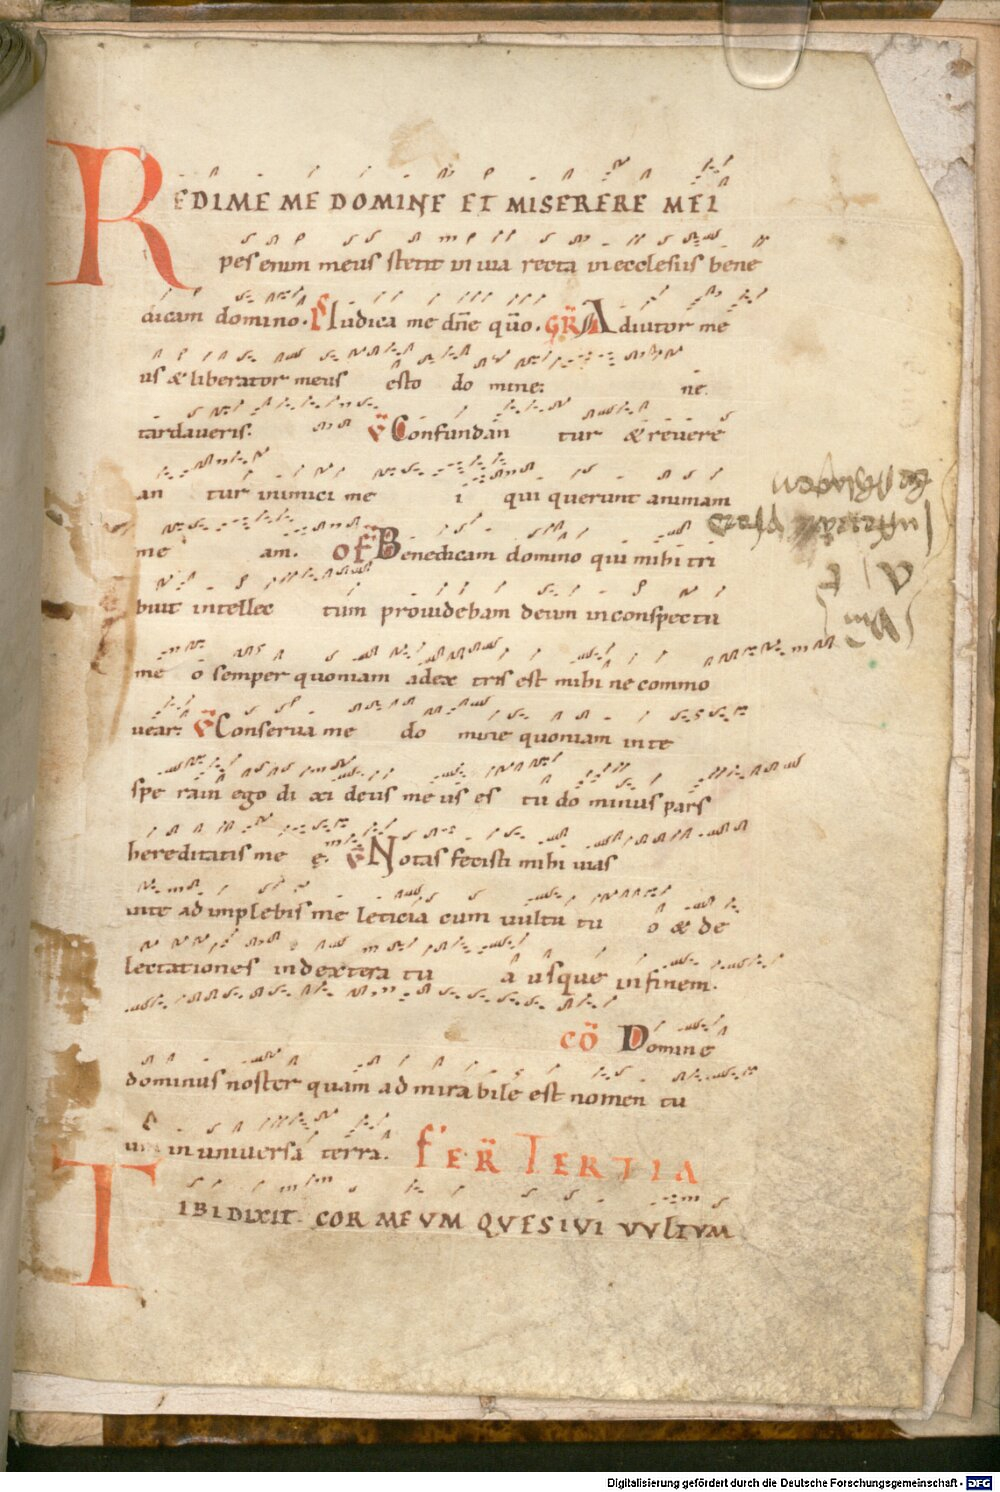 REDIME ME DOMINE ET MISERERE MEI
pes enim meus stetit in uia recta in ecclesiis bene
dicam domino. Ps Iudica me dñe qūo. GR Adiutor me
us & liberator meus esto do mine: ne
tardaueris. V Confundan tur & reuere
an tur inimici me i qui querunt animam
me am. OF Benedicam domino qui mihi tri
buit intellec tum prouidebam deum in conspectu
me o semper quoniam adex tris est mihi ne commo
uear. V Conserua me do mine quoniam in te
spe raui ego di xi deus me us es tu do minus pars
hereditatis me ę. V Notas fecisti mihi uias
uite ad implebis me leticia cum uultu tu o & de
lectationes in dextera tu a usque in finem.
CŌ Domine
dominus noster quam admirabile est nomen tu
um in uniuersa terra. FER TERTIA
TIBI DIXIT COR MEUM QUESIUI UULTUM
Digitalisierung gefördert durch die Deutsche Forschungsgemeinschaft - DFG